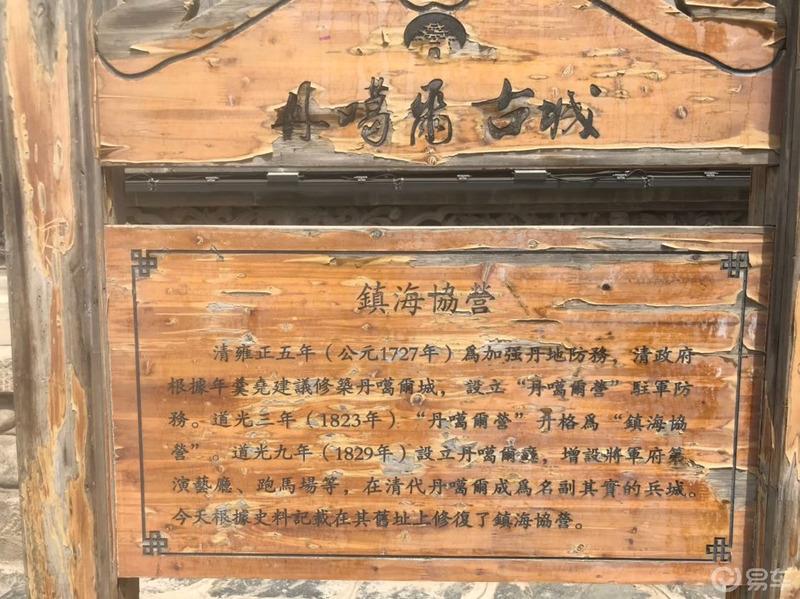 丹噶爾古城
鎮海協營
清雍正五年（公元1727年）爲加强丹地防務，清政府
根據年羹堯建議修築丹噶爾城，設立“丹噶爾營”駐軍防
務。道光三年（1823年）“丹噶爾營”升格爲“鎮海協
營”。道光九年（1829年）設立丹噶爾廳，增設將軍府第、
演藝廳、跑馬場等，在清代丹噶爾成爲名副其實的兵城。
今天根據史料記載在其舊址上修復了鎮海協營。
易车